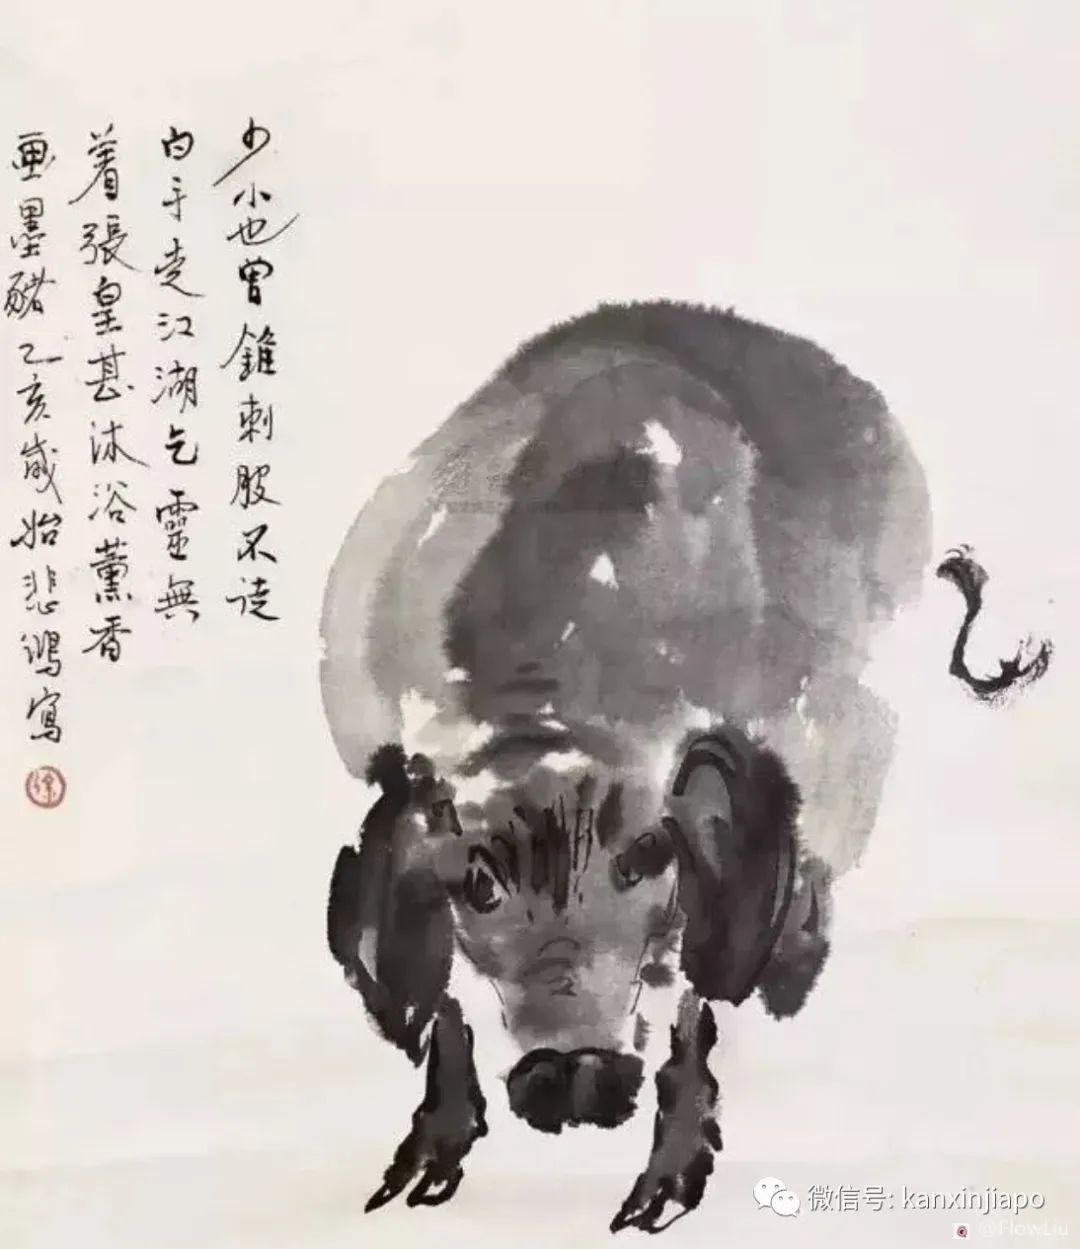 少小也曾錐刺股不徒
白手走江湖乞靈無
着張皇甚沐浴薰香
画墨豬乙亥歲始悲鴻寫
徐
微信号: kanxinjiapo
@FlowLiu